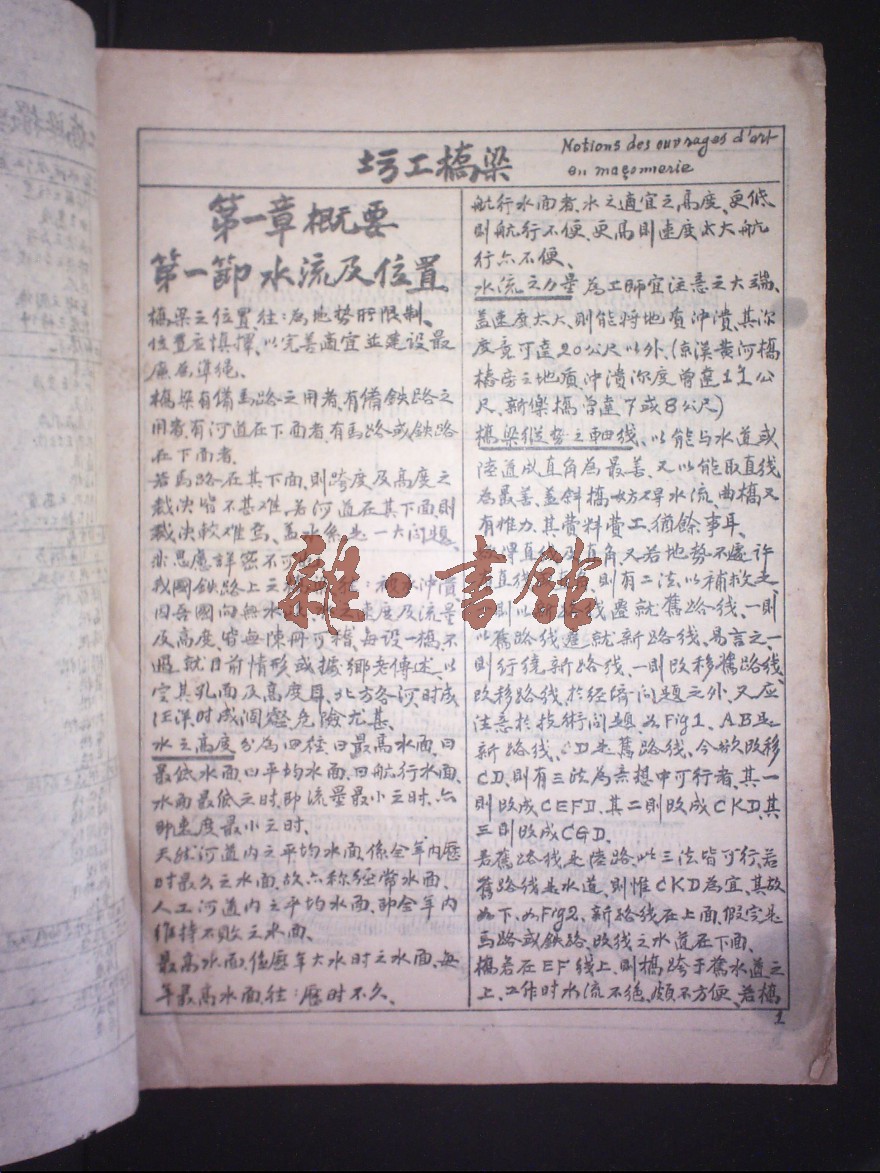 圬工橋梁
Notions des ouvrages d'art
en maçonnerie
第一章概要
第一節水流及位置
橋梁之位置往:為地勢所限制、
位置应慎擇、以完善適宜並建设最
廉為準绳、
橋梁有備馬路之用者、有備鉄路之
用者、有河道在下面者、有馬路或鉄路
在下面者、
若馬路在其下面、則跨度及高度之
裁决皆不甚难、若河道在其下面、則
裁决較难焉、盖水系是一大问題、
非思慮詳密不可
我國鉄路上之 被水沖潰
因吾國向無水 速度及流量
及高度、皆無陳冊可稽、每设一橋、不
過就目前情形或據鄉老傳述、以
定其孔面及高度耳、北方各河、时成
汪洋、时成涸壑、危險尤甚、
水之高度分為四種、曰最高水面、曰
最低水面、曰平均水面、曰航行水面、
水面最低之时、即流量最小之时、亦
即速度最小之时、
天然河道内之平均水面、係全年内歷
时最久之水面、故亦称经常水面、
人工河道内之平均水面、即全年内
维持不败之水面、
最高水面、係歷年大水时之水面、每
年最高水面、往:歷时不久、
航行水面者、水之適宜之高度、更低
則航行不便、更高則速度太大航
行亦不便、
水流之力量為工师宜注意之大端、
盖速度太大、則能将地質沖潰、其深
度竟可達20公尺以外、(京漢黄河橋
橋座之地質沖潰深度曾達 公
尺、新樂橋曾達7或8公尺)
橋梁縱势之軸线、以能与水道或
陸道成直角為最善、又以能取直线
為最善、盖斜橋妨碍水流、曲橋又
有惟力、其费料费工、猶餘事耳、
得直线及直角、又若地势不處许
直线 則有二法以補救之、
則以新路线遷就舊路线、一則
以舊路线遷就新路线、易言之、一
則行绕新路线、一則改移舊路线、
改移路线、於经済问題之外、又应
注意於技術问題、如Fig1、AB是
新路线、CD是舊路线、今欲改移
CD、則有三法為意想中可行者、其一
則改成CEFD、其二則改成CKD、其
三則改成CGD、
若舊路线是陸路、此三法皆可行、若
舊路线是水道、則惟CKD為宜、其故
如下、如Fig2、新路线在上面、假定是
馬路或鉄路、改线之水道在下面、
橋若在EF线上、則橋跨于舊水道之
上、工作时水流不绝、頗不方便、若橋
1
雜·書館